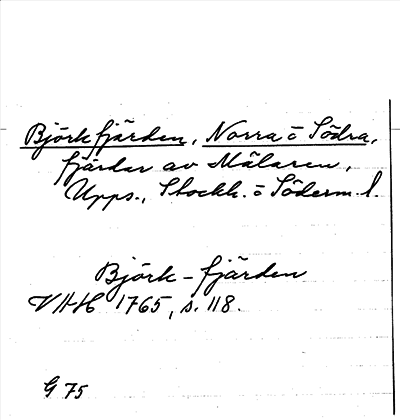 Björkfjärden, Norra o Södra,
fjärdar av Mälaren,
Upps., Stockh. o Söderm. l.
Björk-fjärden
VAH 1765, s. 118.
G 75